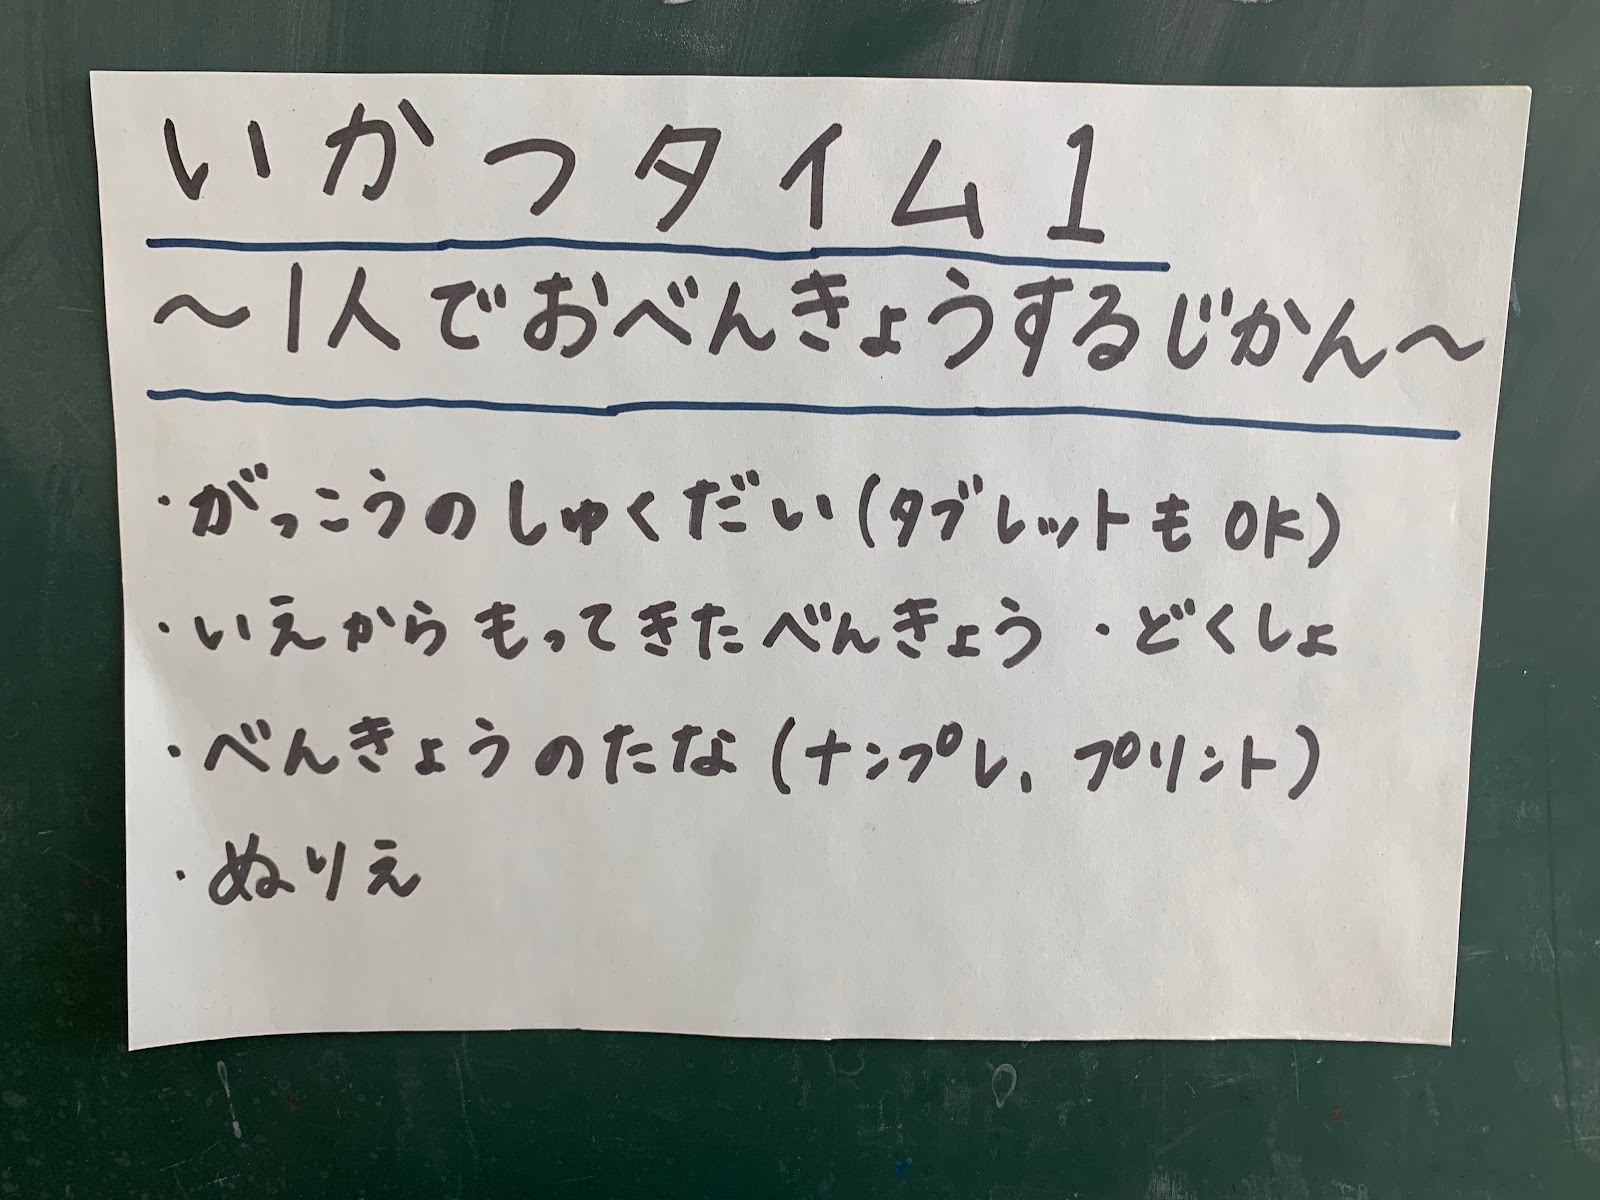 いかつタイム1
～1人でおべんきょうするじかん～
・がっこうのしゅくだい(タブレットもOK)
・いえからもってきたべんきょう ・どくしょ
・べんきょうのたな(ナンプレ、プリント)
・ぬりえ